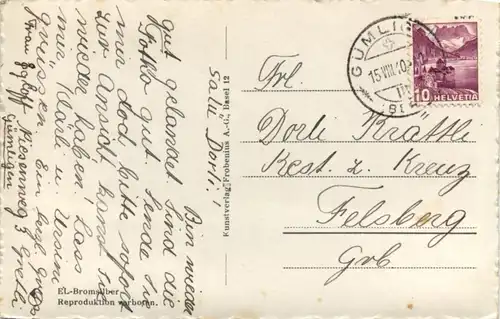 Salü Dorli!
Bin wieder
gut gelandet. Sind die
Fotos gut. Sende sie
mir doch bitte sofort
zur Ansicht kannst sie
wieder haben! Lass
mir Klärli u. Rösim
grüssen. Ein herzl. Gruss
Gretli
Frau Egloff Riesenweg 3
Gümligen
EL-Bromsilber
Reproduktion verboten.
Kunstverlag Frobenius A.-G., Basel 12
GÜMLIGEN
15.VIII.40
10 HELVETIA
Frl.
Dorli Krättli
Rest. z. Kreuz
Felsberg
Grb